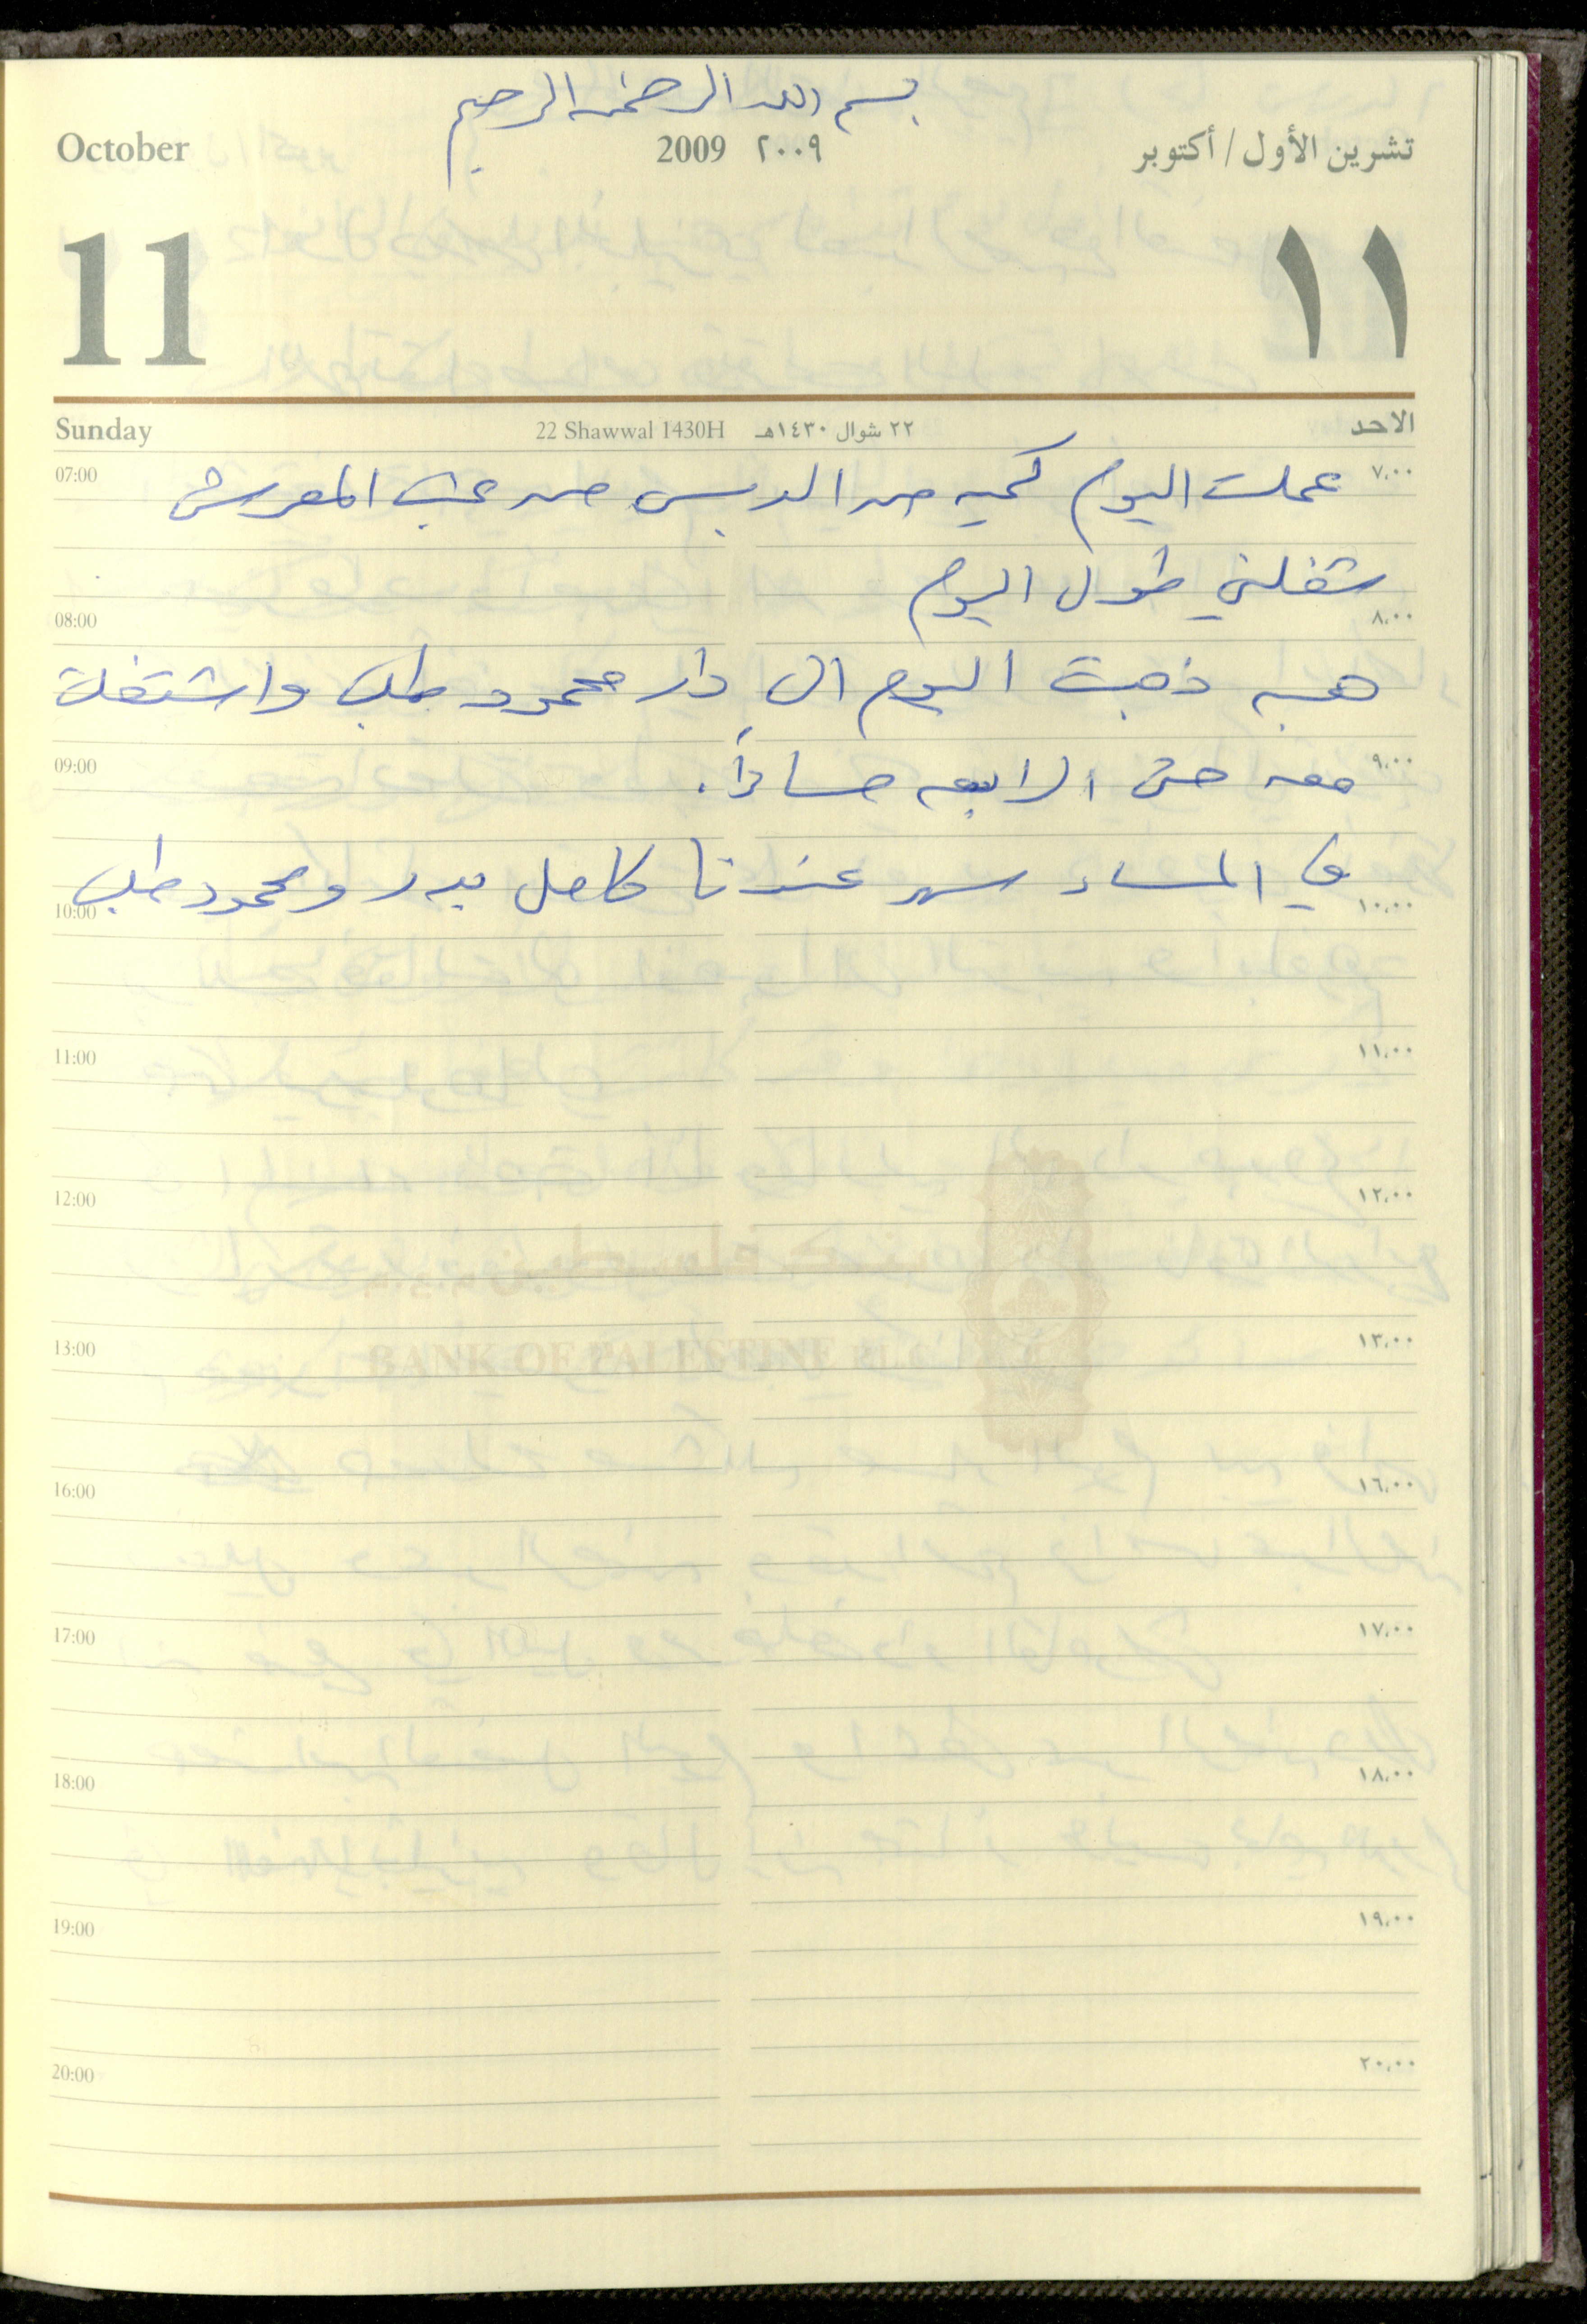 بسم الله الرحمن الرحيم
October 2009 ٢٠٠٩ تشرين الأول / أكتوبر
11 ١١
Sunday 22 Shawwal 1430H ٢٢ شوال ١٤٣٠هـ الاحد
07:00 عملت اليوم كميه من الدبس من عنب المعرش ٧،٠٠
شغلني طول اليوم
08:00 ٨،٠٠
هبه ذهبت اليوم الى دار محمود طلب واشتغلت
09:00 معه حتى الرابعه مساءاً. ٩،٠٠
في المساء سهر عندنا كامل بدر ومحمود طلب
10:00 ١٠،٠٠
11:00 ١١،٠٠
12:00 ١٢،٠٠
بنك فلسطين
13:00 ١٣،٠٠
BANK OF PALESTINE PLC
16:00 ١٦،٠٠
17:00 ١٧،٠٠
18:00 ١٨،٠٠
19:00 ١٩،٠٠
20:00 ٢٠،٠٠